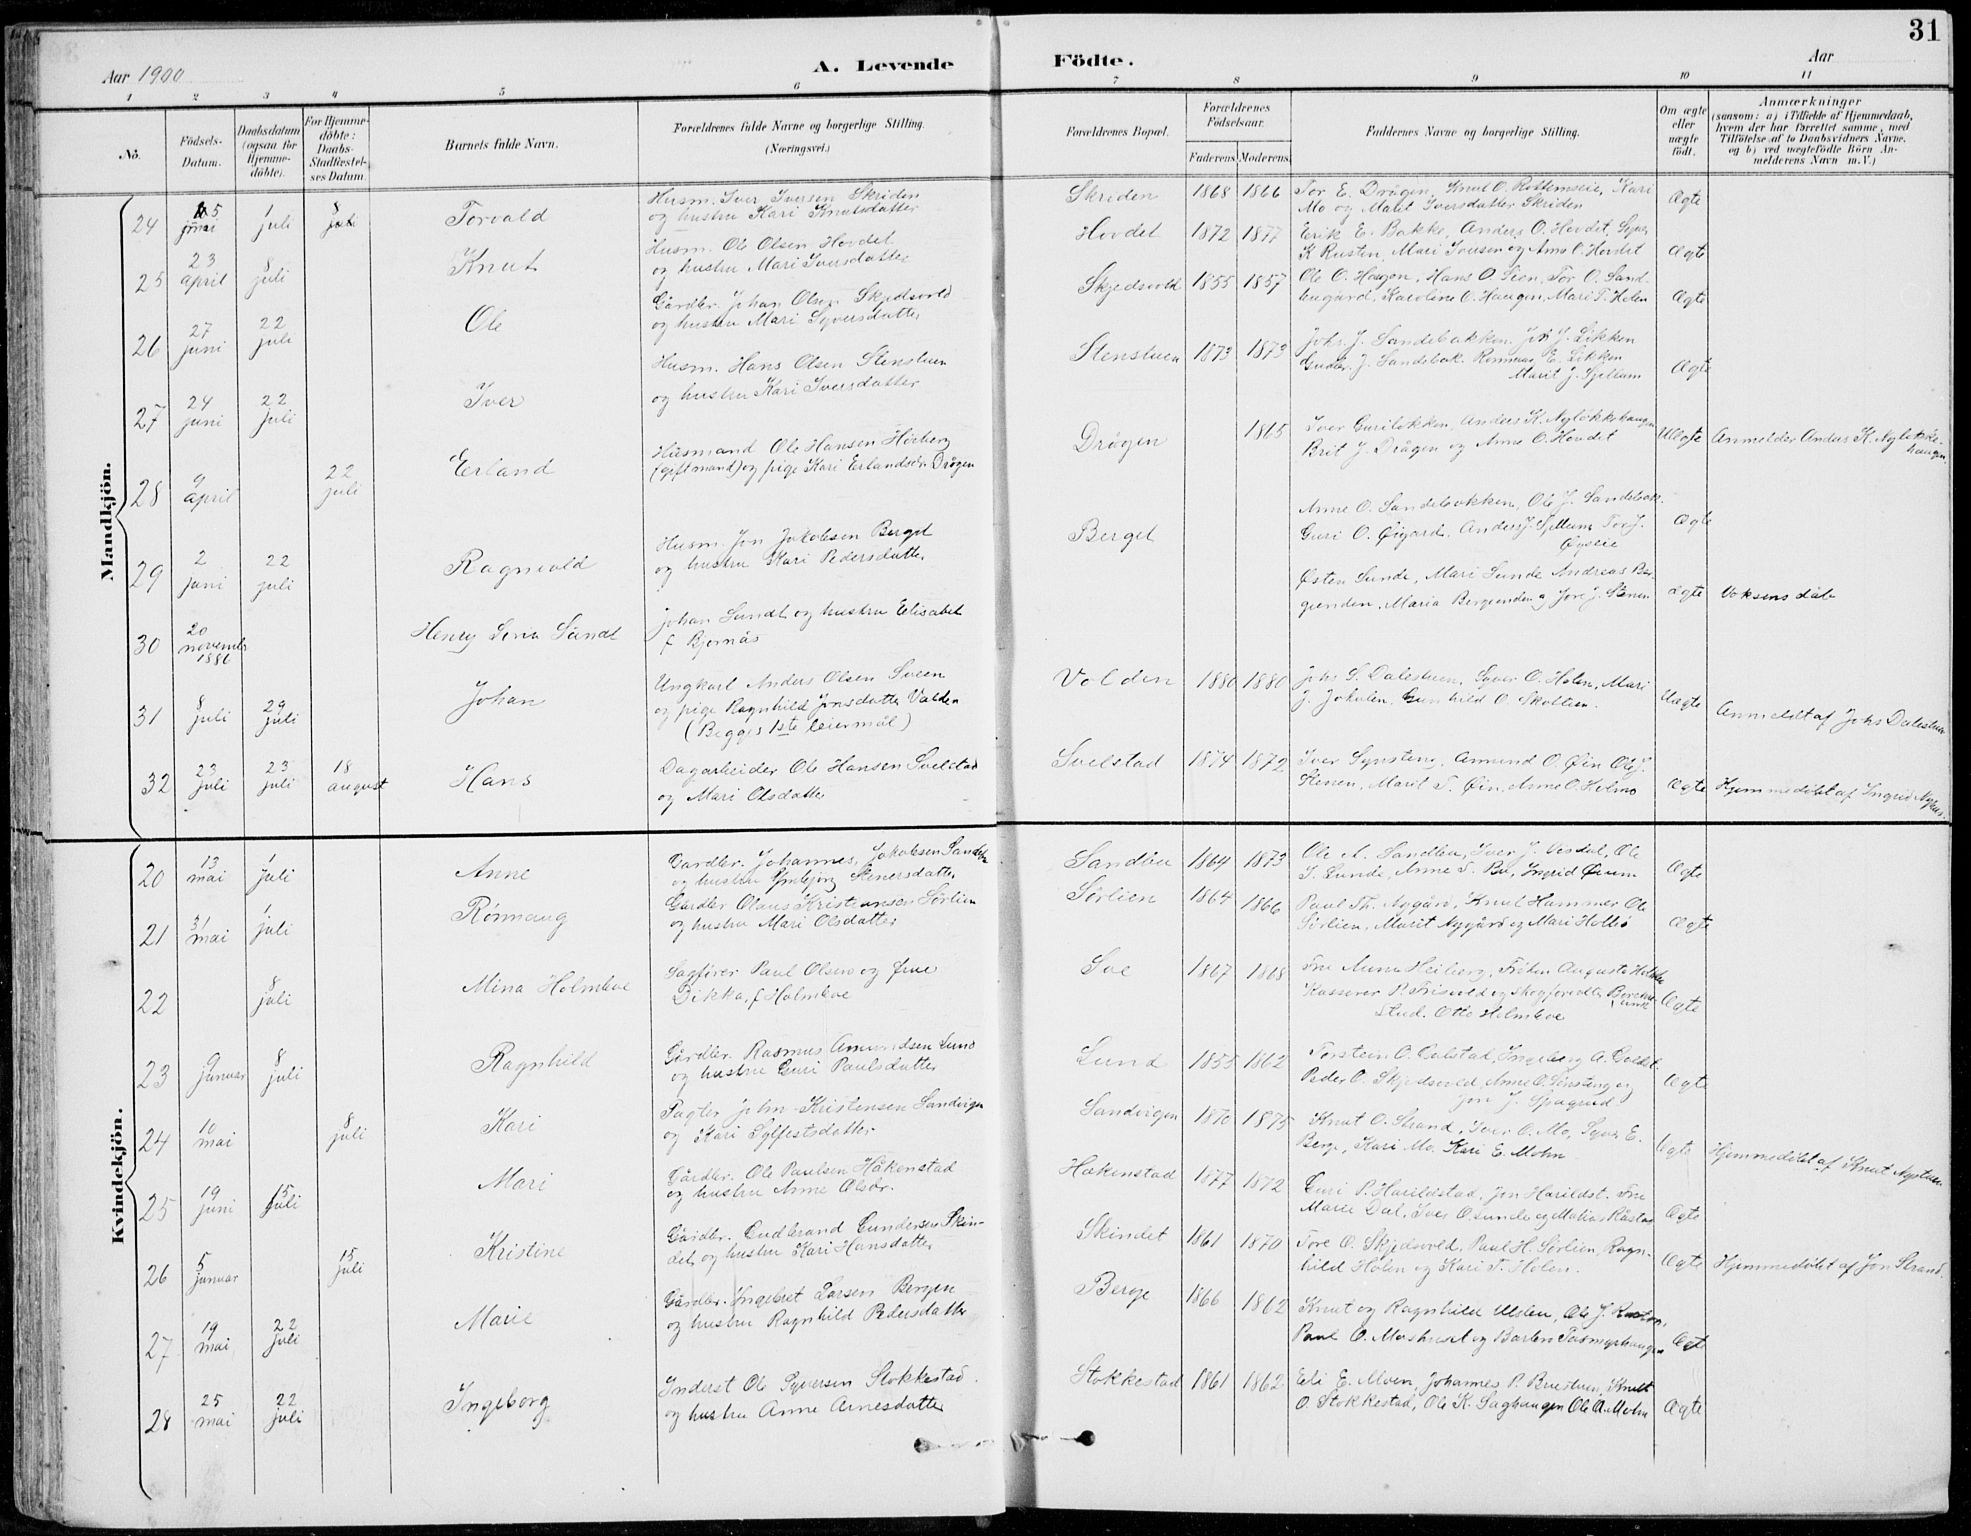 31
Aar 1900
A. Levende Födte.
Aar
1 2 3 4 5 6 7 8 9 10 11
No.
Födsels-Datum.
Daabsdatum (ogsaa for Hjemme-döbte).
For Hjemme-döbte: Daabs-Stadfæstel-ses Datum.
Barnets fulde Navn.
Forældrenes fulde Navne og borgerlige Stilling.
(Næringsvei.)
Forældrenes Bopæl.
Forældrenes Födselsaar.
Faderens. Moderens.
Faddernes Navne og borgerlige Stilling.
Om ægte eller uægte födt.
Anmærkninger
(saasom: a) i Tilfælde af Hjemmedaab, hvem der har forrettet samme, med Tilföielse af to Daabsvidners Navne, og b) ved uægtefödte Börn An-melderens Navn m. V.)
Mandkjön.
24 5 juni 1 juli 8 juli Torvald
Husm. Iver Iversen Skriden
og hustru Kari Knutsdatter
Skriden 1868 1866
Tor E. Drågen, Knut O. Rottemseie, Kari
Mo og Marit Iversdatter Skriden
Ægte
25 23 april 8 juli Knut
Husm. Ole Olsen Hovdet
og hustru Mari Iversdatter
Hovdet 1872 1877
Erik E. Bakke, Anders O. Hovdet, Syver
K Rusten, Mari Iversen og Anne O. Hovdet
Ægte
26 27 juni 22 juli Ole
Gårdbr. Johan Olsen Skjedsvold
og hustru Mari Syversdatter
Skjedsvold 1855 1857
Ole O. Haugen, Hans O. Sien, Tor O. Sand-
haugård, Karoline O. Haugen, Mari T. Holen
Ægte
27 24 juni 22 juli Iver
Husm. Hans Olsen Stenstuen
og hustru Kari Iversdatter
Stenstuen 1873 1873
Johs. J. Sandebakken, Joh J. Likken
Gudbr. J. Sandebak. Rønnaug E. Likken
Marit J. Sjellum
Ægte
28 9 april 22 juli Erland
Husmand Ole Hansen Hörberg
(gift mand) og pige Kari Erlandsdr. Drågen
Drågen 1865
Iver Gurilökken, Anders K. Nylökkehaugen
Brit J. Drågen og Anne O. Hovdet
Uægte
Anmelder Anders K. Nylökke-
haugen
29 2 juni 22 juli Ragnvald
Husm. Jon Jakobsen Berget
og hustru Kari Pedersdatter
Berget
Anne O. Sandebakken, Ole J. Sandebak.
Guri O. Öigard. Anders J. Sjellum Tor J.
Öyseie
Ægte
30 20 november 1886 Henry Sundt
Johan Sundt og hustru Elisabet
f. Bjørnås
Østen Sunde, Mari Sunde Andreas Ber-
grenden, Maria Bergrenden og Jore J. Stenen
Ægte
Voksens dåb
31 8 juli 29 juli Johan
Ungkarl Anders Olsen Sveen
og pige Ragnhild Jonsdatter Volden
(Begges 1ste leiermål)
Volden 1880 1880
Johs S. Dalestuen, Syver O. Holen, Mari
J. Jokulen, Gunhild O. Skottlien.
Uægte
Anmeldt af Johs Dalestuen
32 23 juli 23 juli 18 august Hans
Dagarbeider Ole Hansen Svelstad
og Mari Olsdatter
Svelstad 1874 1872
Iver Synsteng, Amund O. Öin Ole J.
Stenen, Marit T. Öin, Anne O. Holmo
Ægte
Hjemmedöbt af Ingrid Nyhus.
Kvindekjön.
20 13 mai 1 juli Anne
Gårdbr. Johannes Jakobsen Sandbu
og hustru Ambjørg Stenersdatter
Sandbu 1864 1873
Ole A. Sandbu, Iver J. Visdal, Ole
T. Sunde, Anne T. Bu, Ingrid
Ægte
21 31 mai 1 juli Rönnaug
Gårdbr Olaus Kristiansen Sörlien
og hustru Mari Olsdatter
Sörlien 1864 1866
Paul Th. Nygård, Knut Hammer Ole
Sörlien, Marit Nygård og Mari Holbö
Ægte
22 8 juli Mina Holmboe
Sagfører Paul Olsen og frue
Dikka, f. Holmboe
Soe 1867 1868
Fru Anna Heiberg, Fröken Augusta Holmboe
Kasserer P. Frisvold og skogforvalter
Stud. Otto Holmboe
Ægte
23 9 januar 8 juli Ragnhild
Gårdbr. Rasmus Amundsen Lund
og hustru Guri Paulsdatter
Lund 1855 1862
Torstein O. Ulstad, Ingeborg A.
Peder O. Skjedsvold, Anne O. Synsteng og
Jon J.
Ægte
24 10 mai 8 juli Kari
Pagter John Kristensen Sandvigen
og Kari Sylfestsdatter
Sandvigen 1870 1875
Knut O. Strand, Iver O. Mo, Syver E.
Berge, Kari Mo, Kari E. Mohn
Ægte
Hjemmedöbt af Knut Nystuen
25 19 juni 15 juli Mari
Gårdbr. Ole Paulsen Håkenstad
og hustru Anne Olsdr.
Håkenstad 1877 1872
Guri P. Harildstad, Jon Harildst. Fru
Marie Dal, Iver O. Sunde og Matias Råstad
Ægte
26 5 januar 15 juli Kristine
Gårdbr. Gudbrand Gundersen Skin-
det og hustru Kari Hansdatter
Skindet 1861 1870
Tore O. Skjedsvold, Paul H. Sörlien, Ragn-
hild Holen og Kari T. Holen.
Ægte
Hjemmedöbt af Jon Strand.
27 19 mai 22 juli Marie
Gårdbr. Ingebret Larsen Bergen
og hustru Ragnhild Pedersdatter
Berge 1866 1862
Knut og Ragnhild Ulslien, Ole J. Rusten,
Paul O. Moshuset og Barbro Tasmyrhaugen
Ægte
28 25 mai 22 juli Ingeborg
Inderst Ole Syversen Stokkestad.
og hustru Anne Arnesdatter
Stokkestad 1861 1862
Eli E. Moen, Johannes P. Bustuen, Knut
O. Stokkestad, Ole K. Saghaugen Ole A. Mohn
Ægte